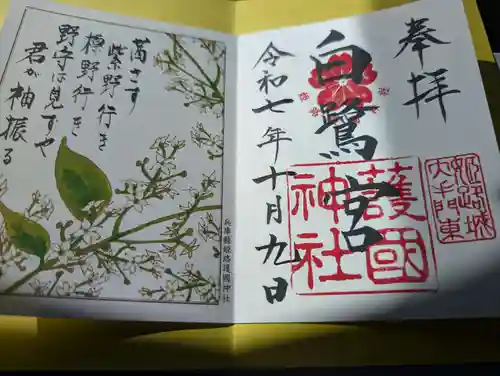 奉拝
姫路城
大手門東
白鷺宮
護國
神社
令和七年十月九日
兵庫縣姫路護國神社
茜さす
紫野行き
標野行き
野守は見ずや
君が袖振る